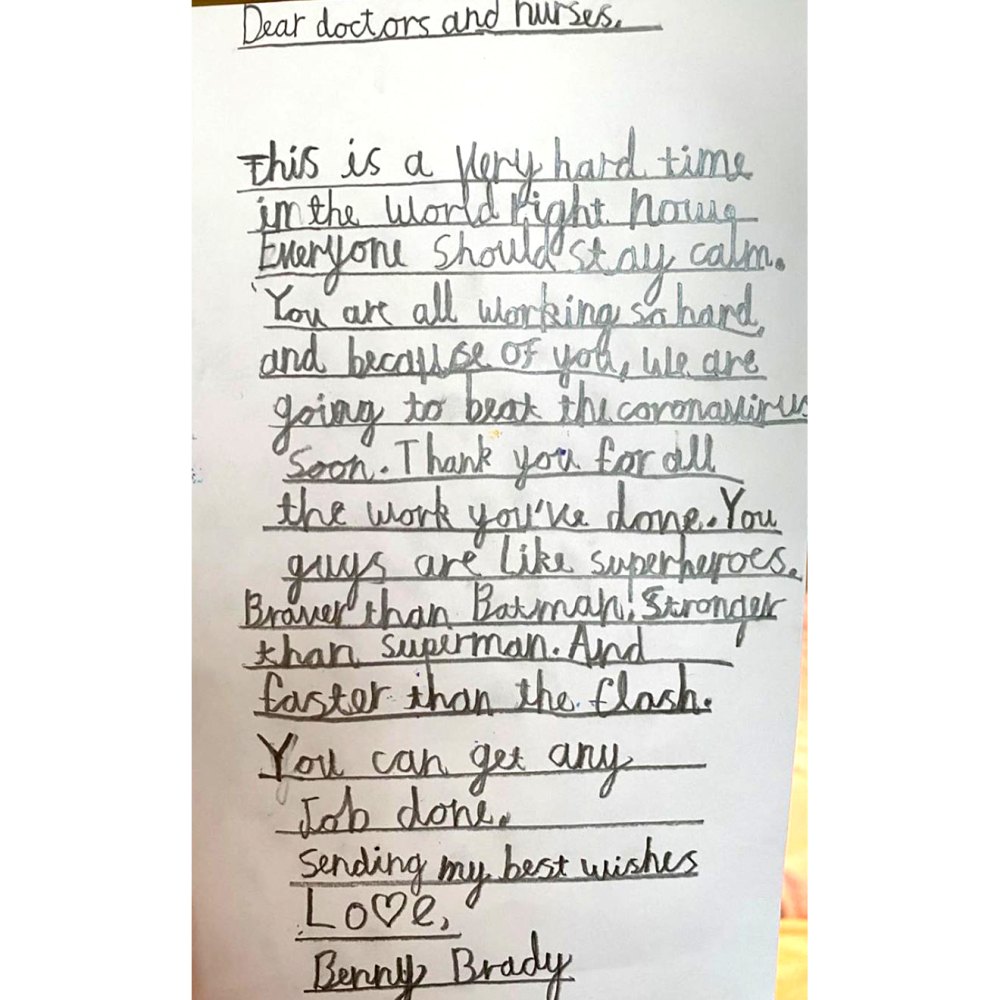 Dear doctors and nurses.
This is a very hard time
in the world right now.
Everyone should stay calm.
You are all working so hard,
and because of you, we are
going to beat the coronavirus
soon. Thank you for all
the work you've done. You
guys are like superheroes.
Braver than Batman! Stronger
than superman. And
faster than the flash.
You can get any
Job done.
Sending my best wishes
Lo♡e,
Benny Brady